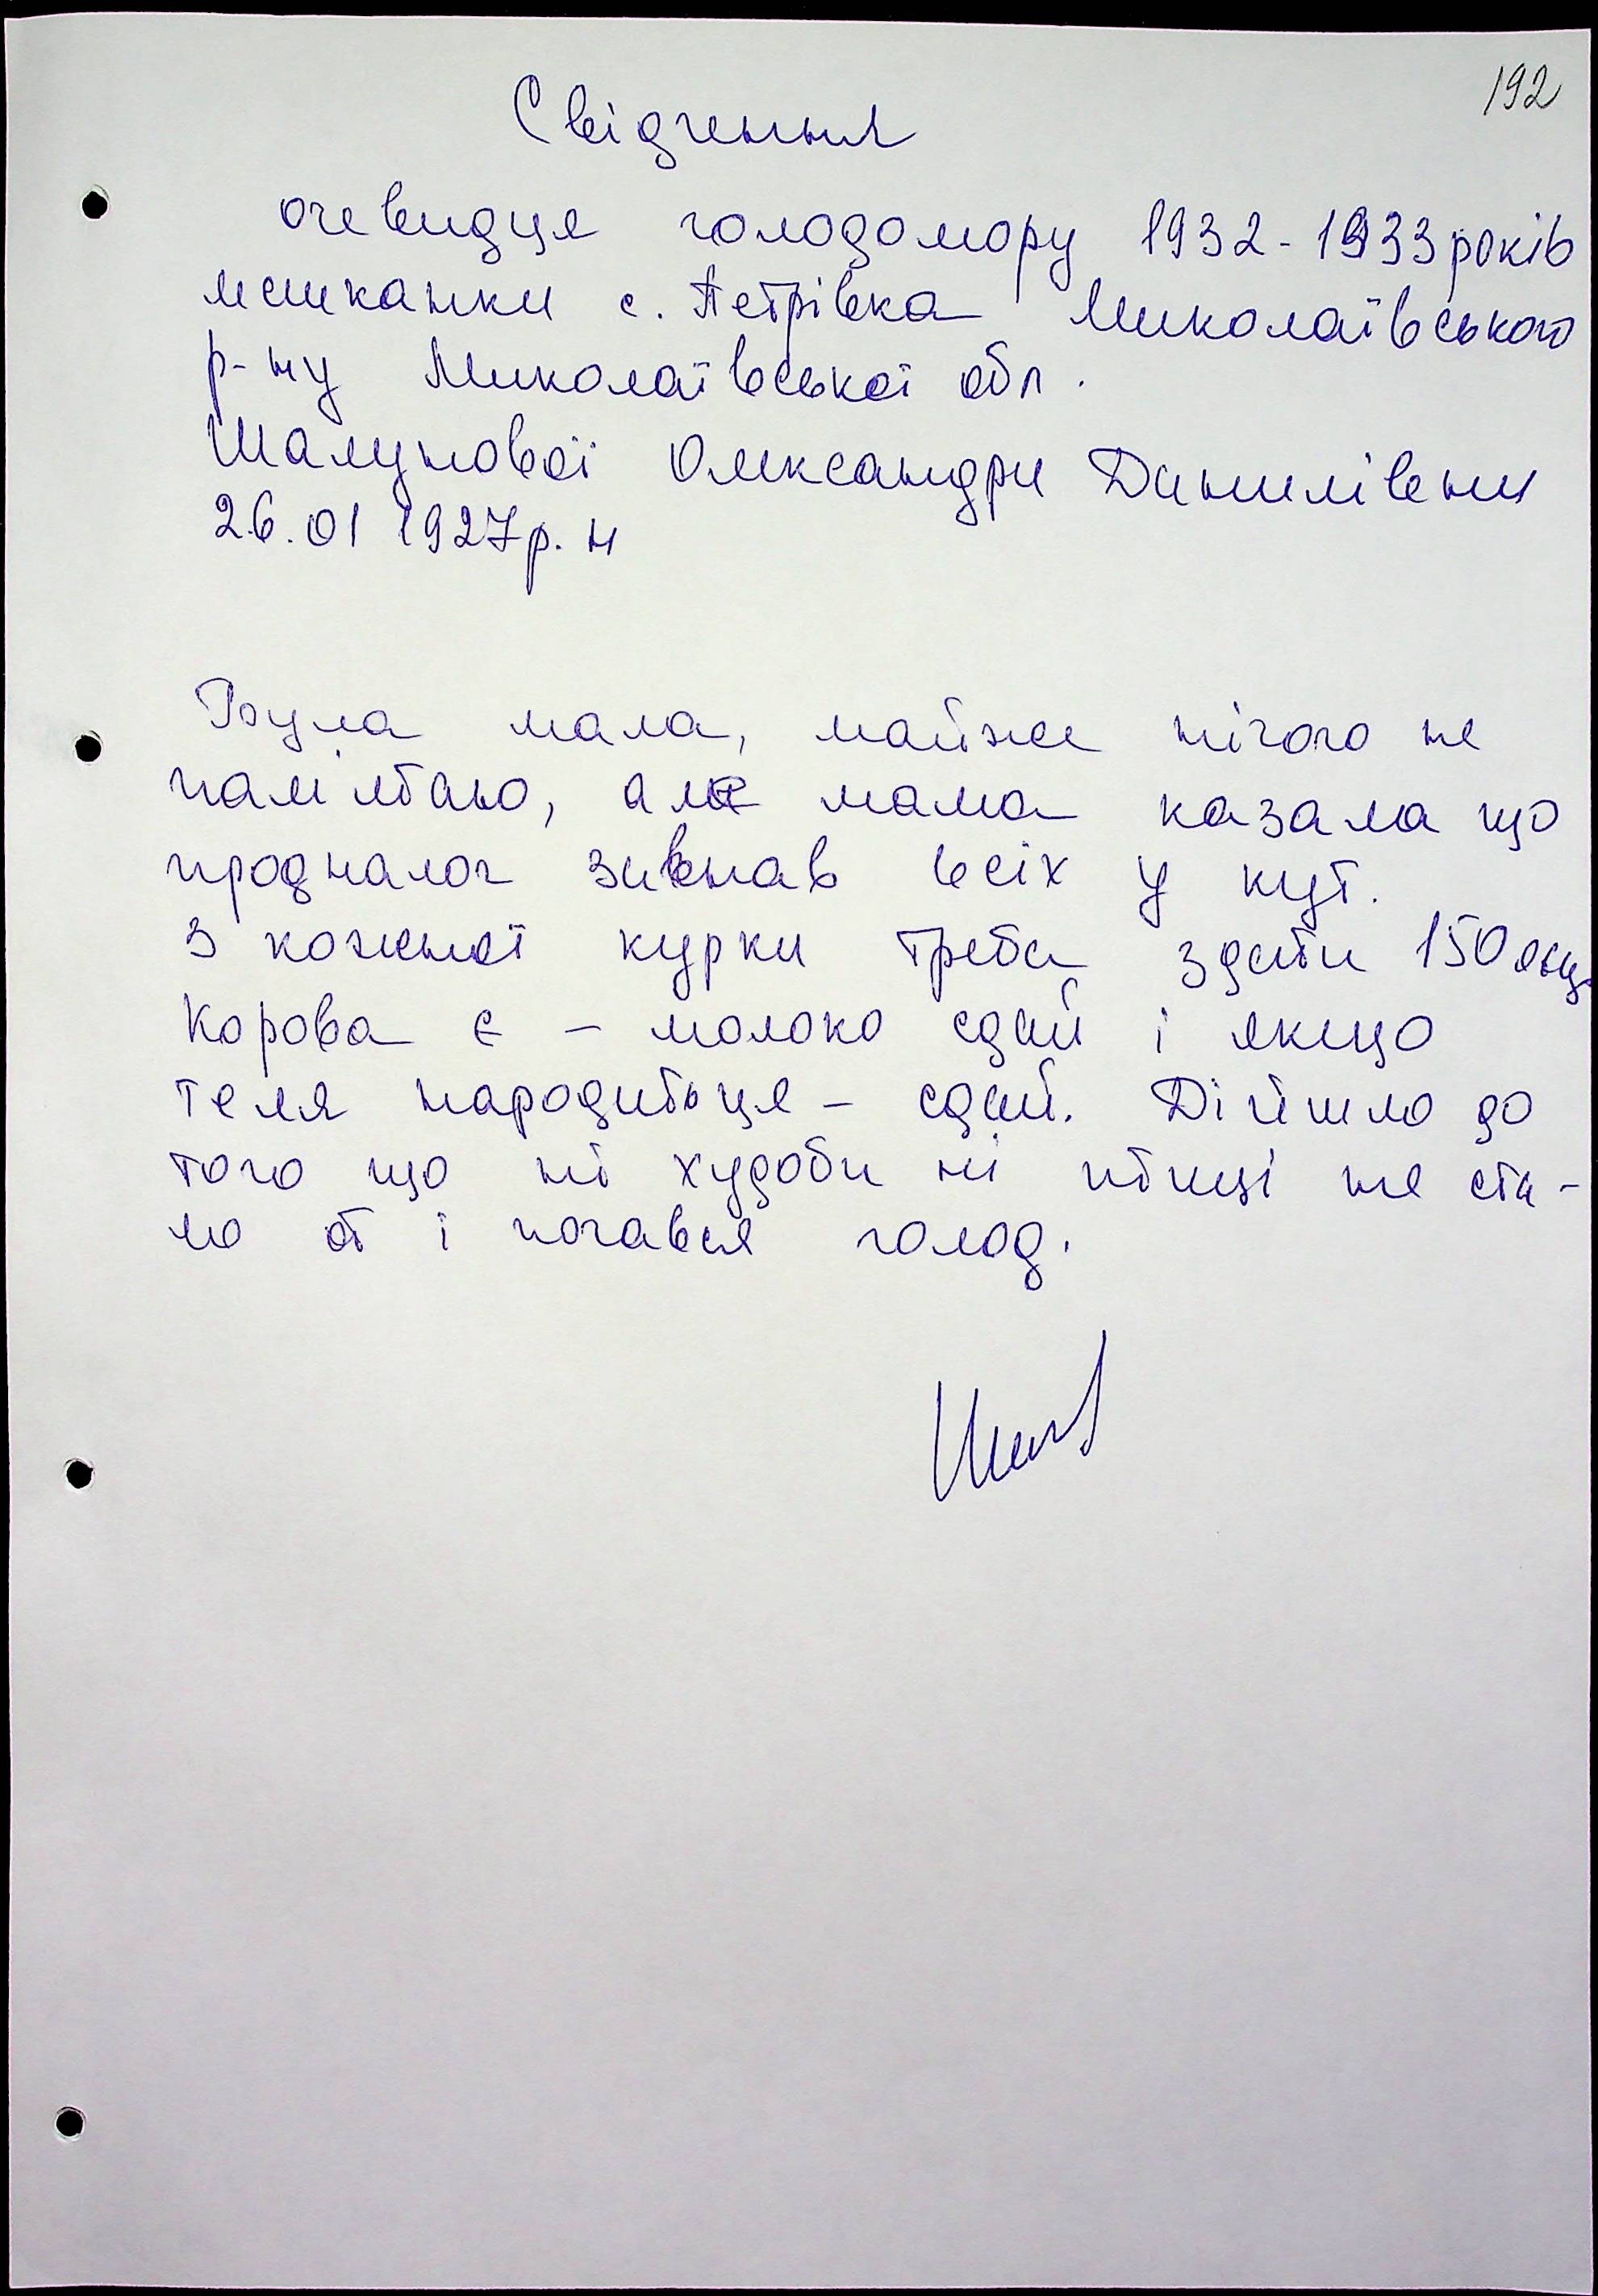 192
Свідчення
очевидця голодомору 1932-1933 років
мешканки с. Петрівка Миколаївського
р-ну Миколаївської обл.
Шалунової Олександри Данилівни
26.01 1927 р. н
Була мала, майже нічого не
памʼятаю, але мама казала що
продналог загнав всіх у кут.
З кожної курки треба здати 150 яиц
Корова є – молоко сдай і якщо
теля народиться – сдай. Дійшло до
того що ні худоби ні птиці не ста-
ло от і почався голод.